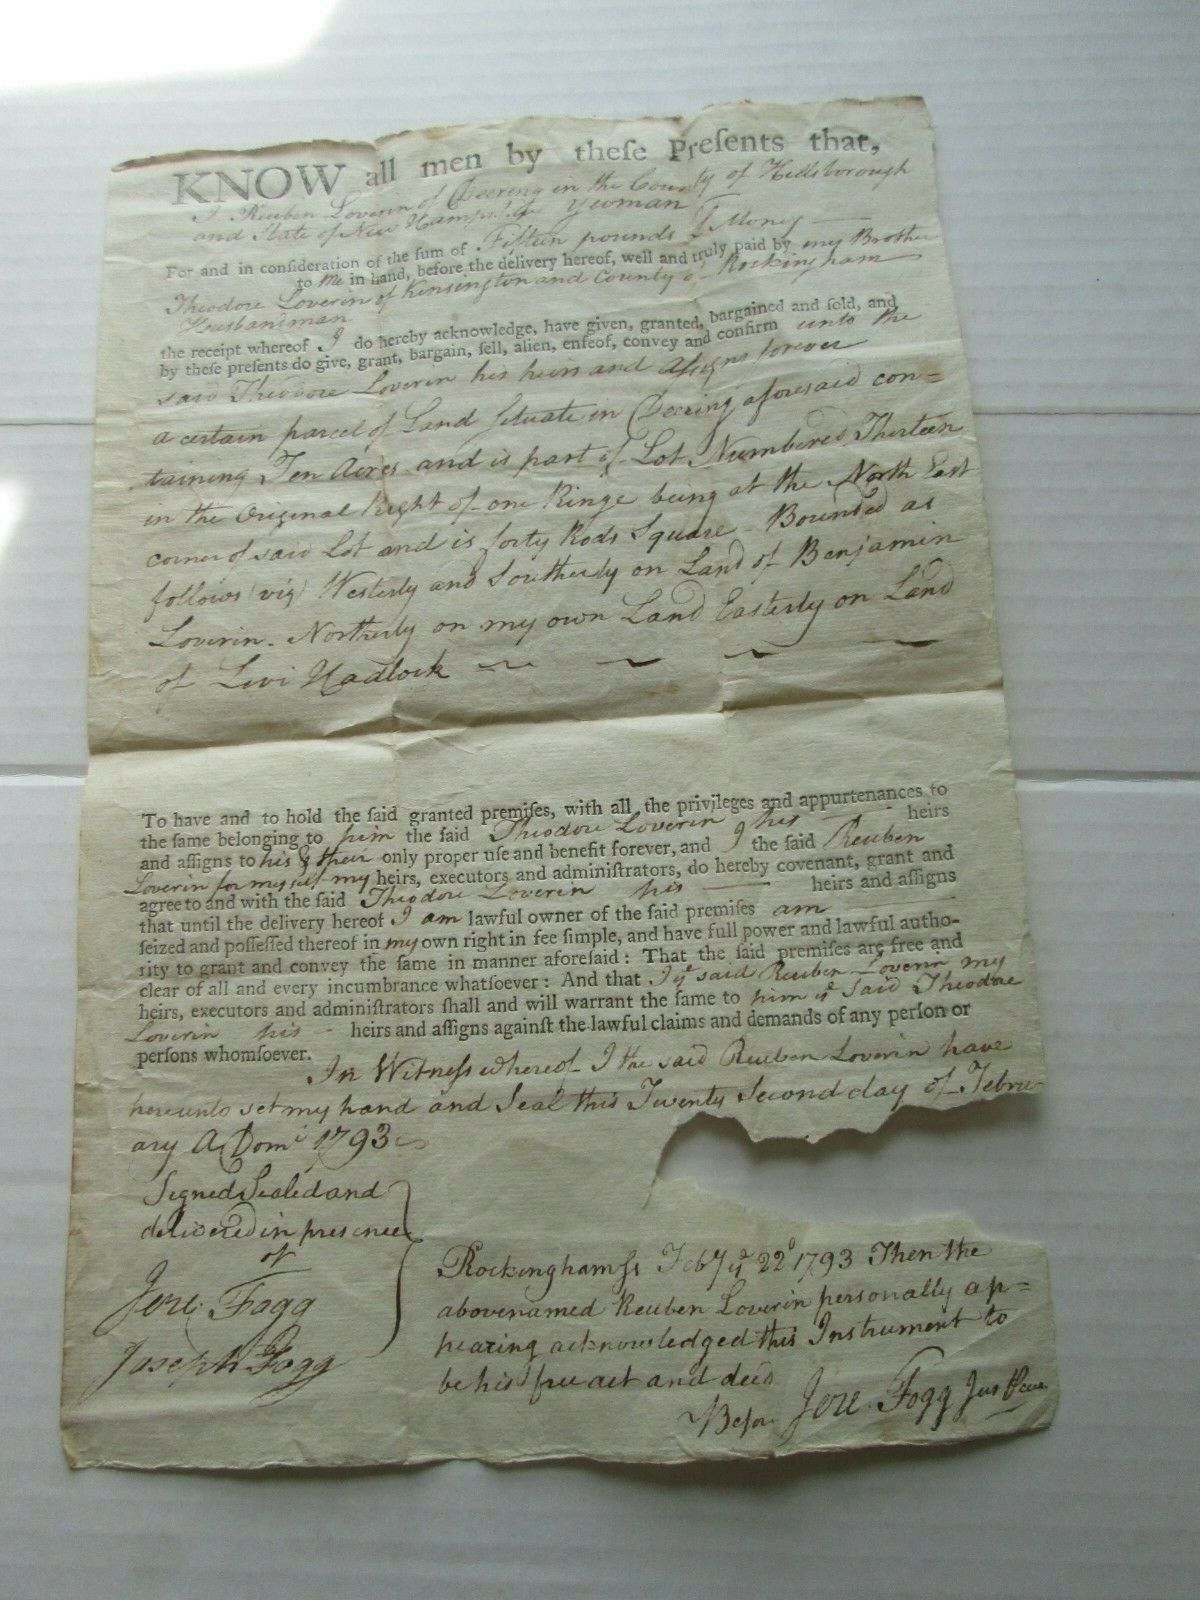 KNOW all men by theſe Preſents that,
I Reuben Loverin of Deering in the County of Hillsborough
and State of New Hampshire Yeoman
For and in conſideration of the ſum of Fifteen pounds L Money
to me in hand, before the delivery hereof, well and truly paid by my Brother
Theodore Loverin of Kensington and County of Rockingham
Husbandman
the receipt whereof I do hereby acknowledge, have given, granted, bargained and ſold, and
by theſe preſents do give, grant, bargain, ſell, alien, enfeof, convey and confirm unto the
said Theodore Loverin his heirs and Aſsigns forever
a certain parcel of Land ſituate in Deering aforesaid con=
taining Ten Acres and is part of Lot Numbered Thirteen
in the Original Right of one Ringe being at the North East
corner of said Lot and is forty Rods Square - Bounded as
follows (viz) Westerly and Southerly on Land of Benjamin
Loverin. Northerly on my own Land Easterly on Land
of Levi Hadlock
To have and to hold the ſaid granted premiſes, with all the privileges and appurtenances to
the ſame belonging to him the ſaid Theodore Loverin his heirs
and aſſigns to his & their only proper uſe and benefit forever, and I the ſaid Reuben
Loverin for myself my heirs, executors and adminiſtrators, do hereby covenant, grant and
agree to and with the ſaid Theodore Loverin his heirs and aſſigns
that until the delivery hereof I am lawful owner of the ſaid premiſes am
ſeized and poſſeſſed thereof in my own right in fee ſimple, and have full power and lawful autho-
rity to grant and convey the ſame in manner aforeſaid: That the ſaid premiſes are free and
clear of all and every incumbrance whatſoever: And that I ye said Reuben Loverin my
heirs, executors and adminiſtrators ſhall and will warrant the ſame to him ye Said Theodore
Loverin his - heirs and aſſigns againſt the lawful claims and demands of any perſon or
perſons whomſoever.
In Witneſs whereof I the said Reuben Loverin have
hereunto set my hand and Seal this Twenty Second day of Febru-
ary A Domi 1793
Signed Sealed and
delivered in presence
of
Jere. Fogg
Joseph Fogg
Rockingham ſs Feby ye 22d 1793 Then the
abovenamed Reuben Loverin personally ap=
pearing acknowledged this Instrument to
be his free act and deed
Before Jere. Fogg Jus Peace